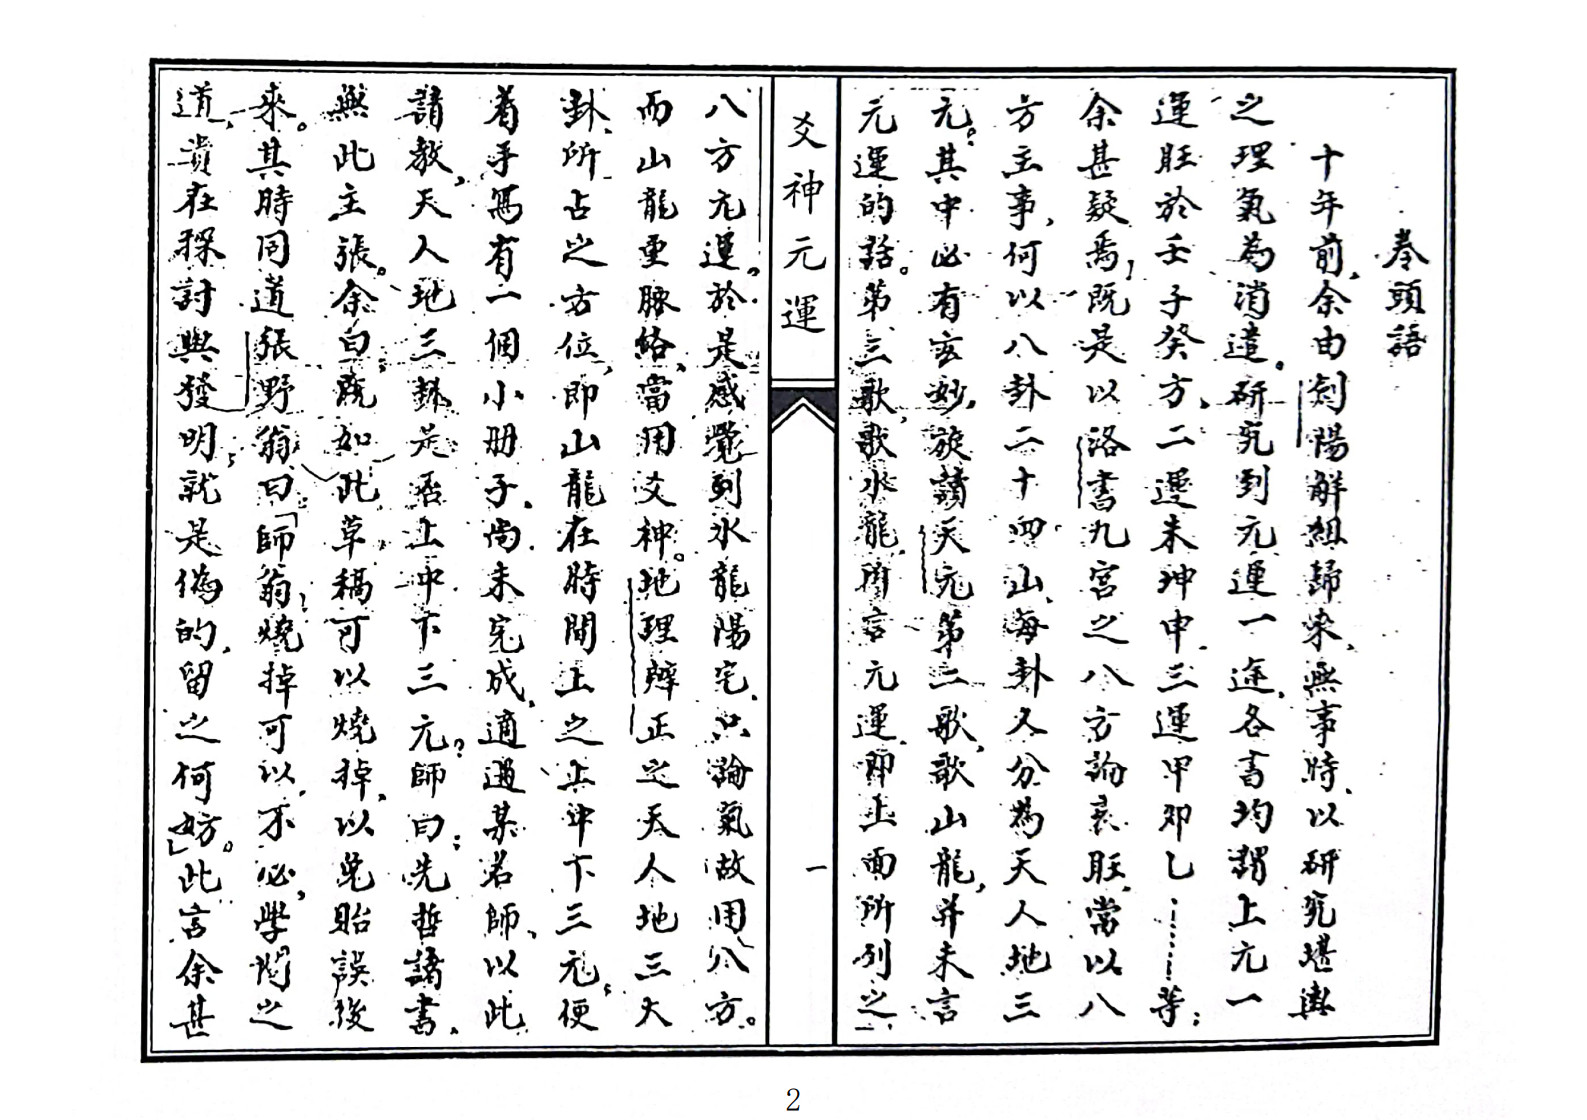 卷頭語
十年前,余由劍陽解組歸來,無事時、以研究堪輿
之理氣為消遣。研究到元運一途、各書均謂上元一
運旺於壬子癸方、二運未坤申、三運甲卯乙……等;
余甚疑焉,既是以洛書九宮之八方論衰旺、當以八
方主事,何以八卦二十四山、每卦又分為天人地三
元。其中必有玄妙,旋讀天元第二歌,歌山龍,并未言
元運的話。第三歌,歌水龍,所言元運、即上面所列之
爻神元運
一
八方元運。於是感覺到水龍陽宅、只論氣故用八方。
而山龍重脈絡、當用爻神。地理辨正之天人地三大
卦、所占之方位、即山龍在時間上之上中下三元;便
着手寫有一個小册子、尚未完成、適遇某名師、以此
請教,天人地三卦是否上中下三元?師曰:先哲諸書、
無此主張。余曰:既如此、草稿可以燒掉,以免貽誤後
來。其時同道張野翁曰:「師翁,燒掉可以、不必,學問之
道、貴在探討與發明;就是偽的、留之何妨。」此言余甚
2